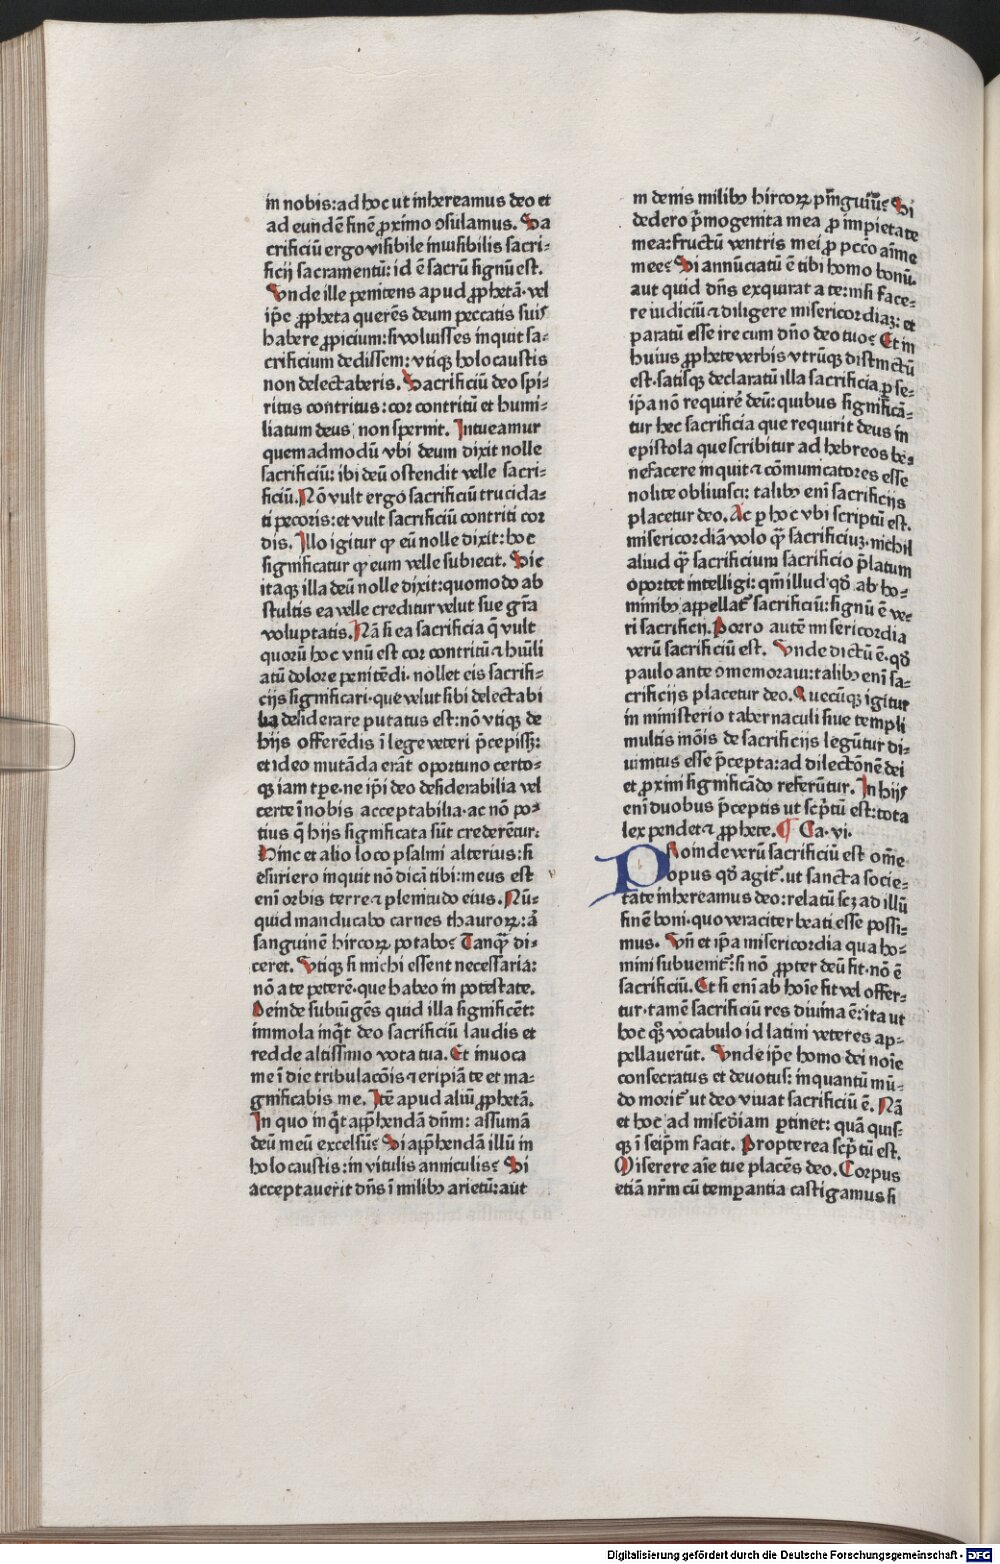 in nobis: ad hoc ut inhereamus deo et
ad eundē finē ꝓximo ꝯsulamus. Sa
crificiū ergo visibile inuisibilis sacri⸗
ficij sacramentū: id ē sacrū signū est.
Vnde ille penitens apud ꝓphetā· vel
ip̄e ꝓpheta querēs deum peccatis suis
habere ꝓpicium: si voluisses inquit sa⸗
crificium dedissem: vtiqꝫ holocaustis
non delectaberis. Sacrificiū deo spi⸗
ritus contritus: cor contritū et humi⸗
liatum deus non spernit. Intueamur
quemadmodū vbi deum dixit nolle
sacrificiū: ibi deū ostendit velle sacri⸗
ficiū. Nō vult ergo sacrificiū trucida⸗
ti pecoris: et vult sacrificiū contriti cor
dis. Illo igitur qꝫ eū nolle dixit: hoc
significatur qꝫ eum velle subiecit. Sic
itaqꝫ illa deū nolle dixit: quomodo ab
stultis ea velle creditur velut sue gr̄a
voluptatis. Nā si ea sacrificia q̄ vult
quorū hoc vnū est cor contritū ⁊ hūili
atū dolore penitēdi· nollet eis sacrifi⸗
cijs significari· que velut sibi delectabi
lia desiderare putatus est: nō vtiqꝫ de
hijs offerēdis ī lege veteri p̄cepissꝫ:
et ideo mutāda erāt oportuno certo⸗
qꝫ iam tꝑe· ne ip̄i deo desiderabilia vel
certe ī nobis acceptabilia· ac nō po⸗
tius q̄ hijs significata sūt crederētur:
Hinc et alio loco psalmi alterius: si
esuriero inquit nō dicā tibi: meus est
enī orbis terre ⁊ plenitudo eius. Nū⸗
quid manducabo carnes thauroꝝ: ā
sanguinē hircoꝝ potabo? Tanqꝫ di⸗
ceret. Vtiqꝫ si michi essent necessaria:
nō a te peterē· que habeo in potestate.
Deinde subiūgēs quid illa significēt:
immola inq̄t deo sacrificiū laudis et
redde altissimo vota tua. Et inuoca
me ī die tribulacōis ⁊ eripiā te et ma⸗
gnificabis me. Itē apud aliū ꝓphetā.
In quo inq̄t apꝓhendā dn̄m: assumā
deū meū excelsū? Si apꝓhendā illū in
holocaustis: in vitulis anniculis? Si
acceptauerit dn̄s ī milibꝫ arietū: aut
in denis milibꝫ hircoꝝ pīguiū? Si
dedero p̄mogenita mea ꝓ impietate
mea: fructū ventris mei ꝓ pcc̄o aīme
mee? Si annūciatū ē tibi homo bonū·
aut quid dn̄s exquirat a te: nisi face⸗
re iudiciū ⁊ diligere misericordiaꝫ: et
paratū esse ire cum dn̄o deo tuo? Et in
huius ꝓphete verbis vtrūqꝫ distinctū
est· satisqꝫ declaratū illa sacrificia ꝑ se⸗
ip̄a nō requirē deū: quibus significā⸗
tur hec sacrificia que requirit deus in
epistola que scribitur ad hebreos be⸗
nefacere inquit ⁊ cōmunicatores esse
nolite obliuisci: talibꝫ enī sacrificijs
placetur deo. Ac ꝑ hoc vbi scriptū est.
misericordiā volo qꝫ̄ sacrificiuꝫ· nichil
aliud qꝫ̄ sacrificium sacrificio p̄latum
oportet intelligi: qm̄ illud qd̄ ab ho⸗
minibꝫ appellat̄ sacrificiū: signū ē ve⸗
ri sacrificij. Porro autē misericordia
verū sacrificiū est. Vnde dictū ē· qd̄
paulo ante ꝯmemoraui: talibꝫ enī sa⸗
crificijs placetur deo. Quecūqꝫ igitur
in ministerio tabernaculi siue templi
multis mōis de sacrificijs legūtur di⸗
uinitus esse p̄cepta: ad dilectōnē dei
et ꝓximi significādo referūtur. In hijs
enī duobus p̄ceptis ut scp̄tū est: tota
lex pendet ⁊ ꝓphete. ¶ Ca· vi·
PRoinde verū sacrificiū est om̄e
opus qd̄ agit̄· ut sancta socie⸗
tate inhereamus deo: relatū scꝫ ad illū
finē boni· quo veraciter beati esse possi⸗
mus. Vn̄ et ip̄a misericordia qua ho⸗
mini subuenit̄: si nō ꝓpter deū fit· nō ē
sacrificiū. Et si enī ab hoīe fit vel offer⸗
tur· tamē sacrificiū res diuina ē: ita ut
hoc qꝫ vocabulo id latini veteres ap⸗
pellauerūt. Vnde ip̄e homo dei noīe
consecratus et deuotus: inquantū mū⸗
do morit̄ ut deo viuat sacrificiū ē. Nā
et hoc ad mis̄cd̄iam ꝑtinet: quā quis⸗
qꝫ ī seip̄m facit. Propterea scp̄tū est.
Miserere aīe tue placēs deo. Corpus
etiā nr̄m cū temꝑantia castigamus si
Digitalisierung gefördert durch die Deutsche Forschungsgemeinschaft - DFG